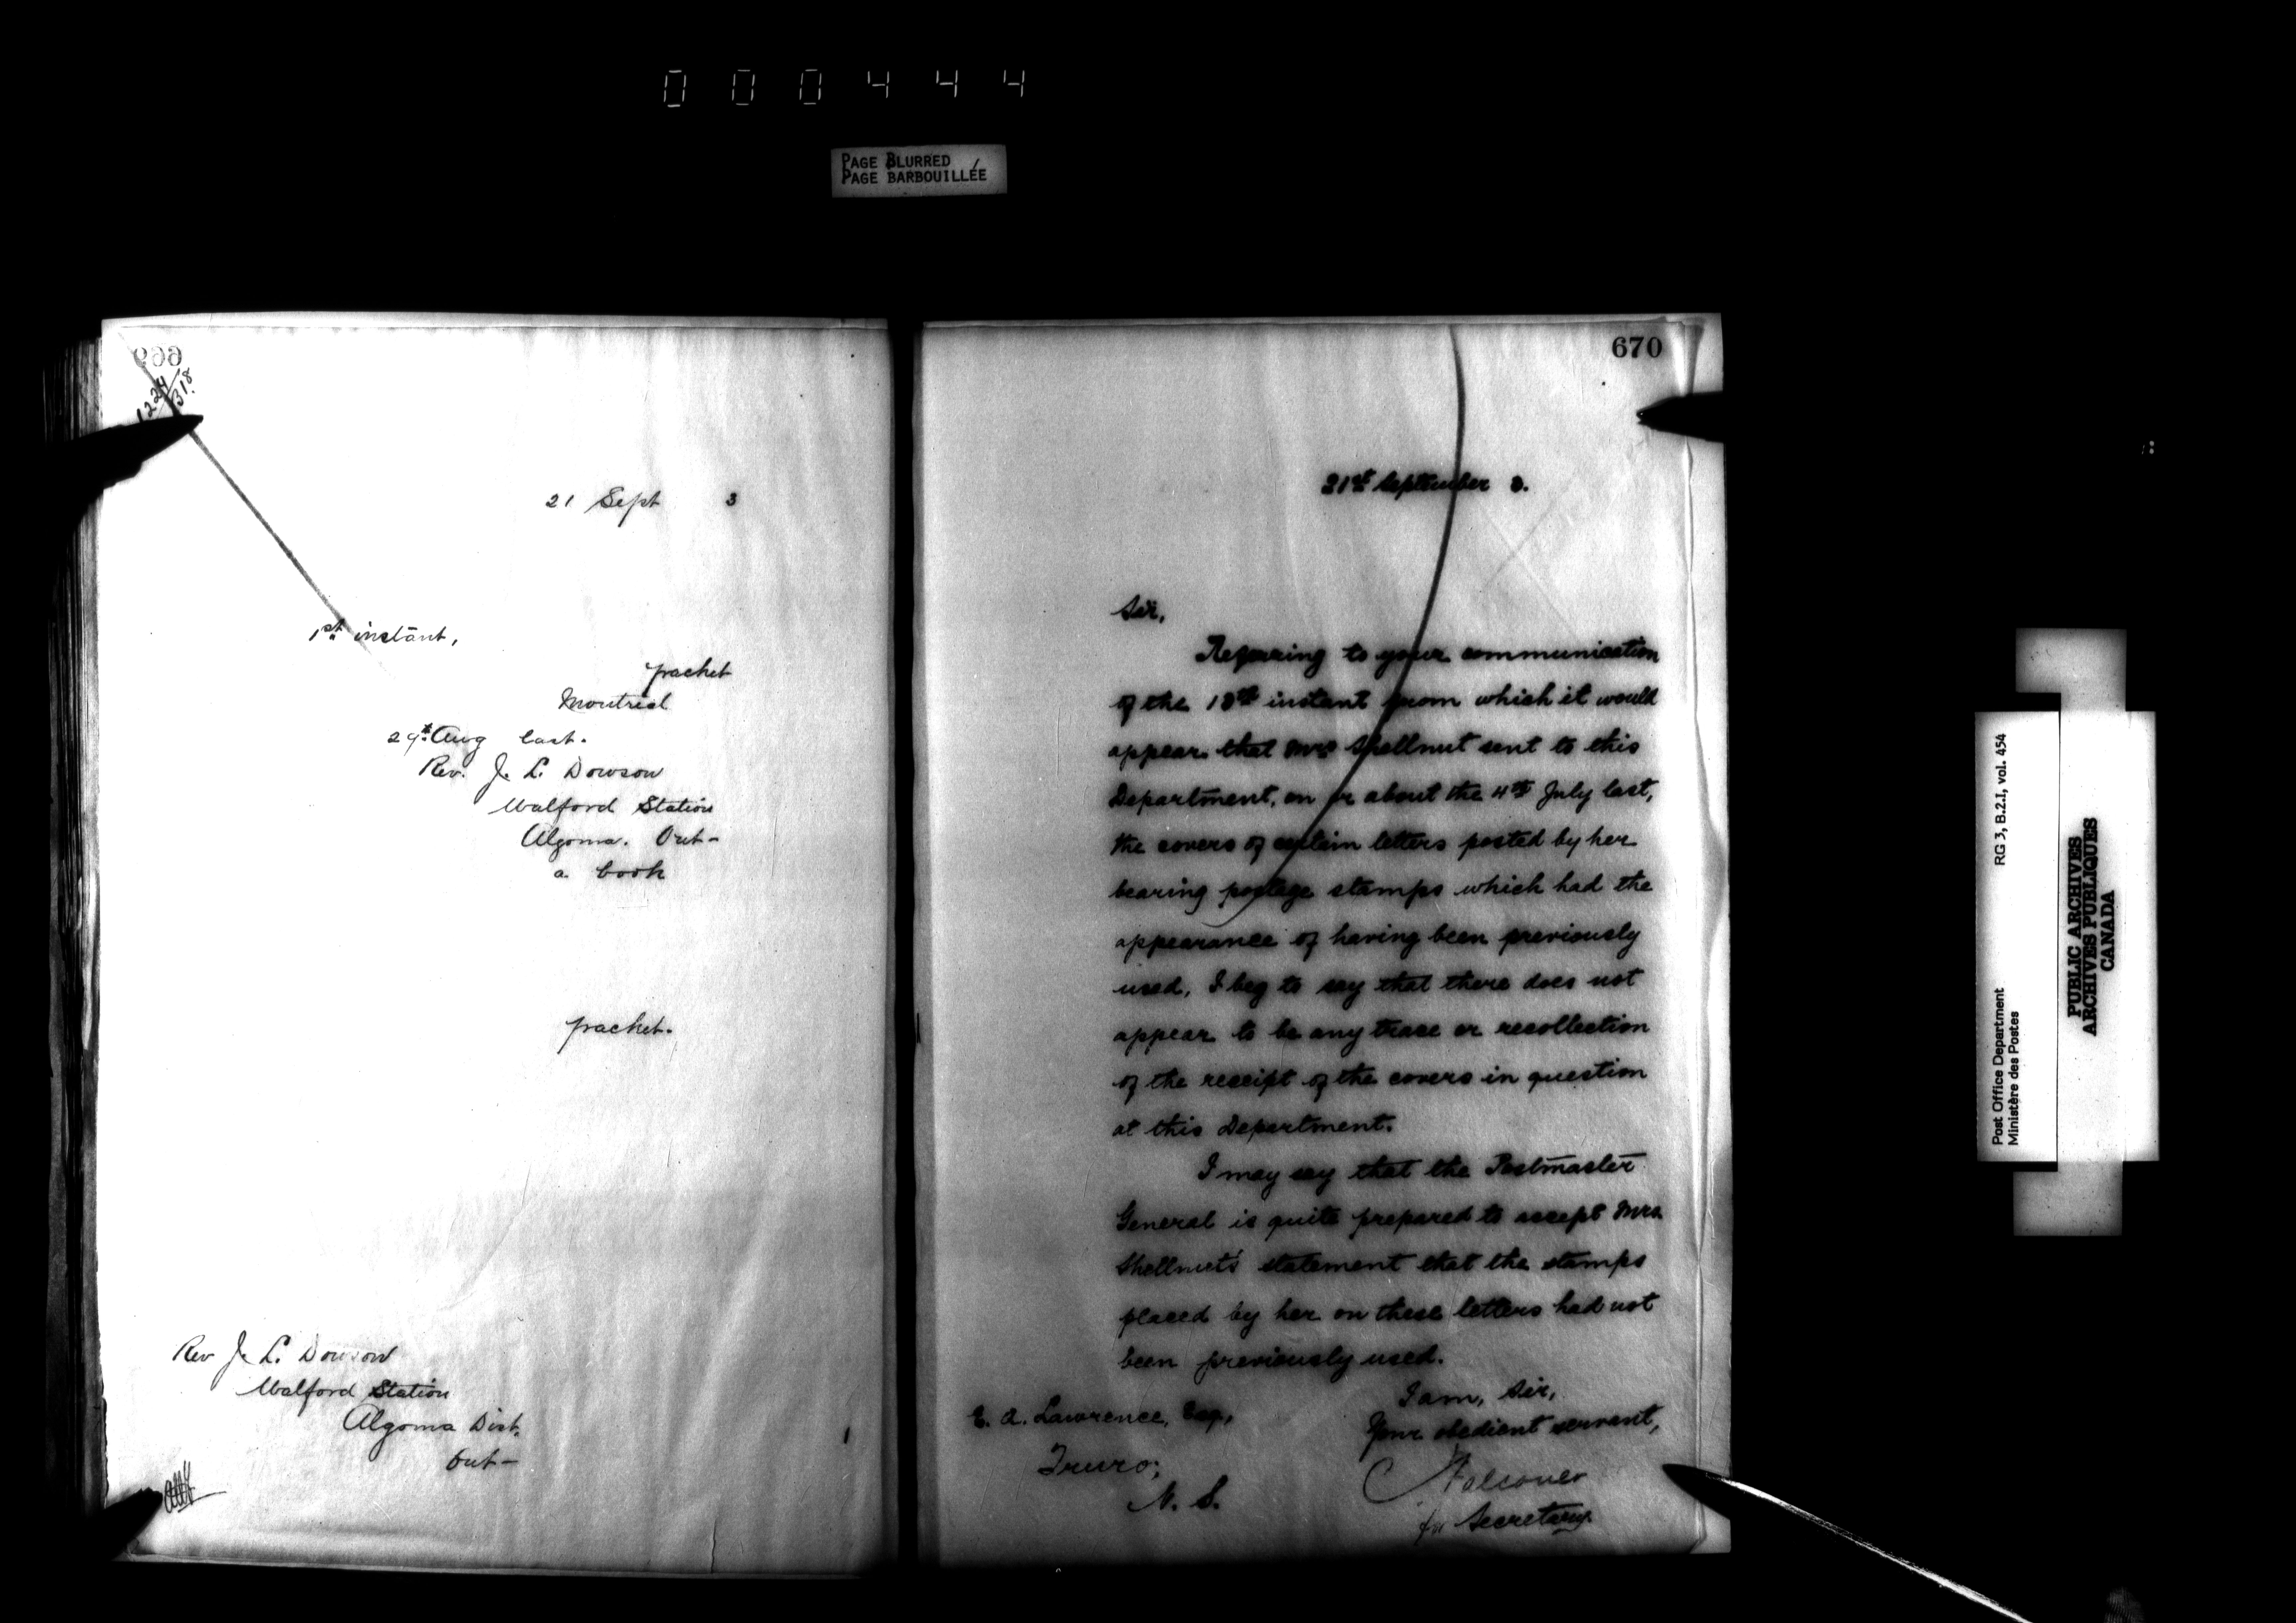 000444
PAGE BLURRED
PAGE BARBOUILLÉE
1224/318
21 Sept 3
1st instant,
packet
Montreal
29th Aug last.
Rev. J. L. Dowson
Walford Station
Algoma. Ont-
a book
packet.
Rev J. L. Dowson
Walford Station
Algoma Dist.
Ont-
670
21st September 3.
Sir,
Referring to your communication
of the 18th instant from which it would
appear that Mrs Shellnut sent to this
Department, on or about the 4th July last,
the covers of certain letters posted by her
bearing postage stamps which had the
appearance of having been previously
used, I beg to say that there does not
appear to be any trace or recollection
of the receipt of the covers in question
at this Department.
I may say that the Postmaster
General is quite prepared to accept Mrs.
Shellnut's statement that the stamps
placed by her on these letters had not
been previously used.
I am, Sir,
Your obedient servant,
Falconer
for Secretary.
E. A. Lawrence, Esq.,
Truro,
N. S.
RG 3, B.2.I, vol. 454
Post Office Department
Ministère des Postes
PUBLIC ARCHIVES
ARCHIVES PUBLIQUES
CANADA